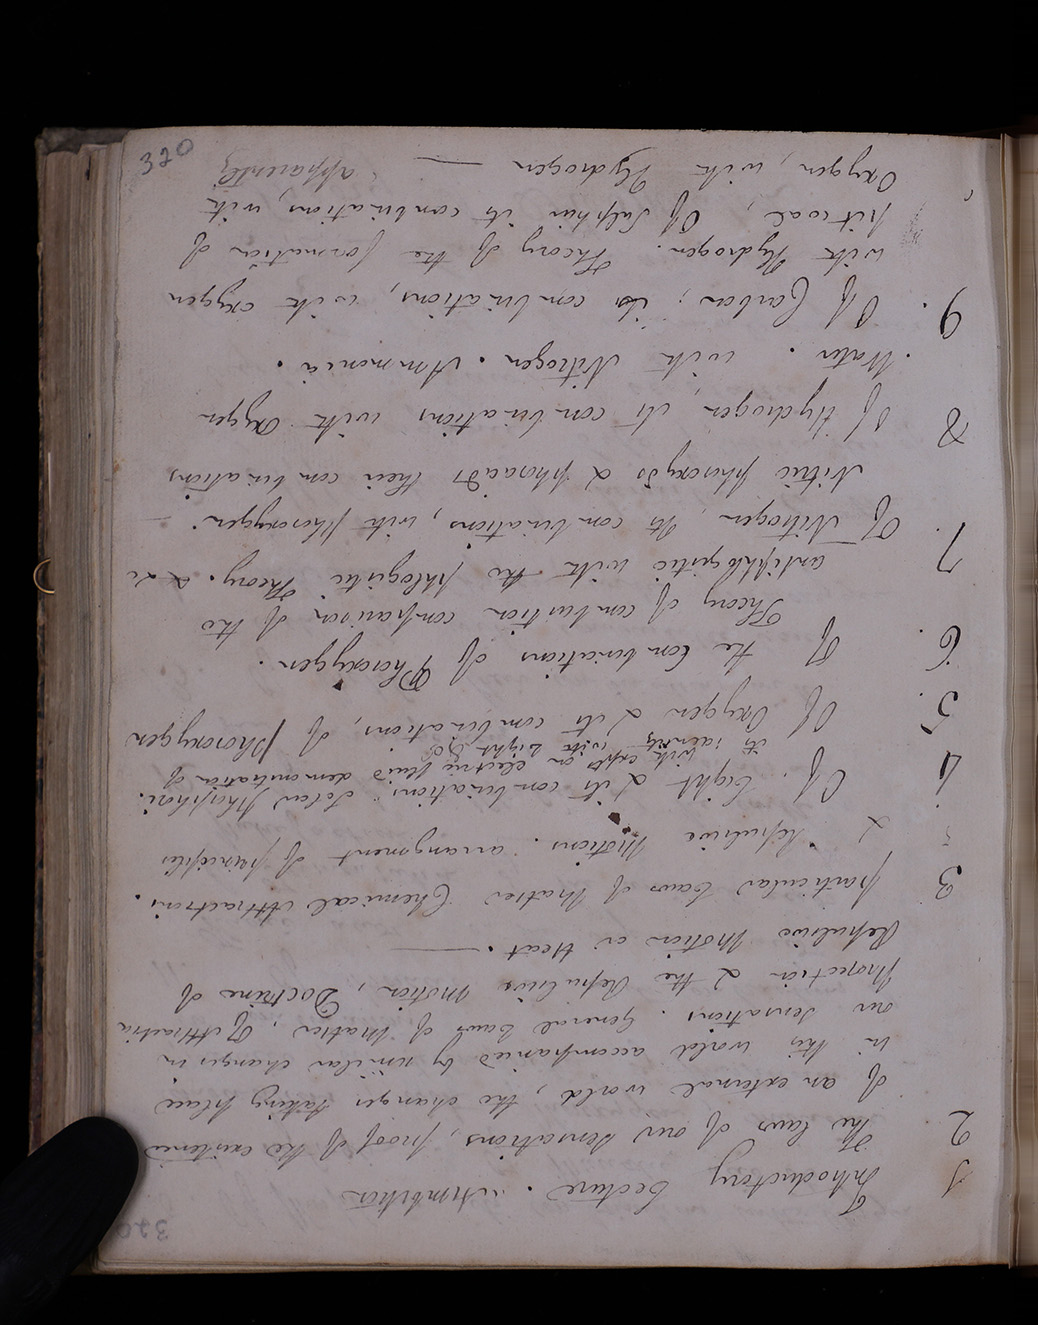 1 Introductory Lecture. Ambition
2 The laws of our sensations, proof of the existence
of an external world, the changes taking place
in this world accompanied by similar changes in
our sensations. General Laws of Matter, Of Attraction
Projection & the Repulsive Motion, Doctrine of
Repulsive Motion or Heat.
3 particular Laws of Matter Chemical Attractions.
& Repulsive Motions. arrangment of principles
4. Of Light & its combinations. Solar Phosphori.
electric fluid demonstration of
its identity with Light &c
with expts on
5. Of Oxygen & its combinations, of phosoxygen
6. Of the Combinations of Phosoxygen.
Theory of combustion comparison of the
antiphlogistic with the phlogistic Theory. &c
7. Of Nitrogen, its combinations, with phosoxygen.
Nitric phosoxyds & phosacids their combinations
8 Of Hydrogen, its combinations with oxygen
Water. with Nitrogen. Ammonia.
9. Of Carbon; its combinations, with oxygen
with Hydrogen. Theory of the formation of
pit coal, Of Sulphur its combinations, with
Oxygen, with Hydrogen — apparently
320